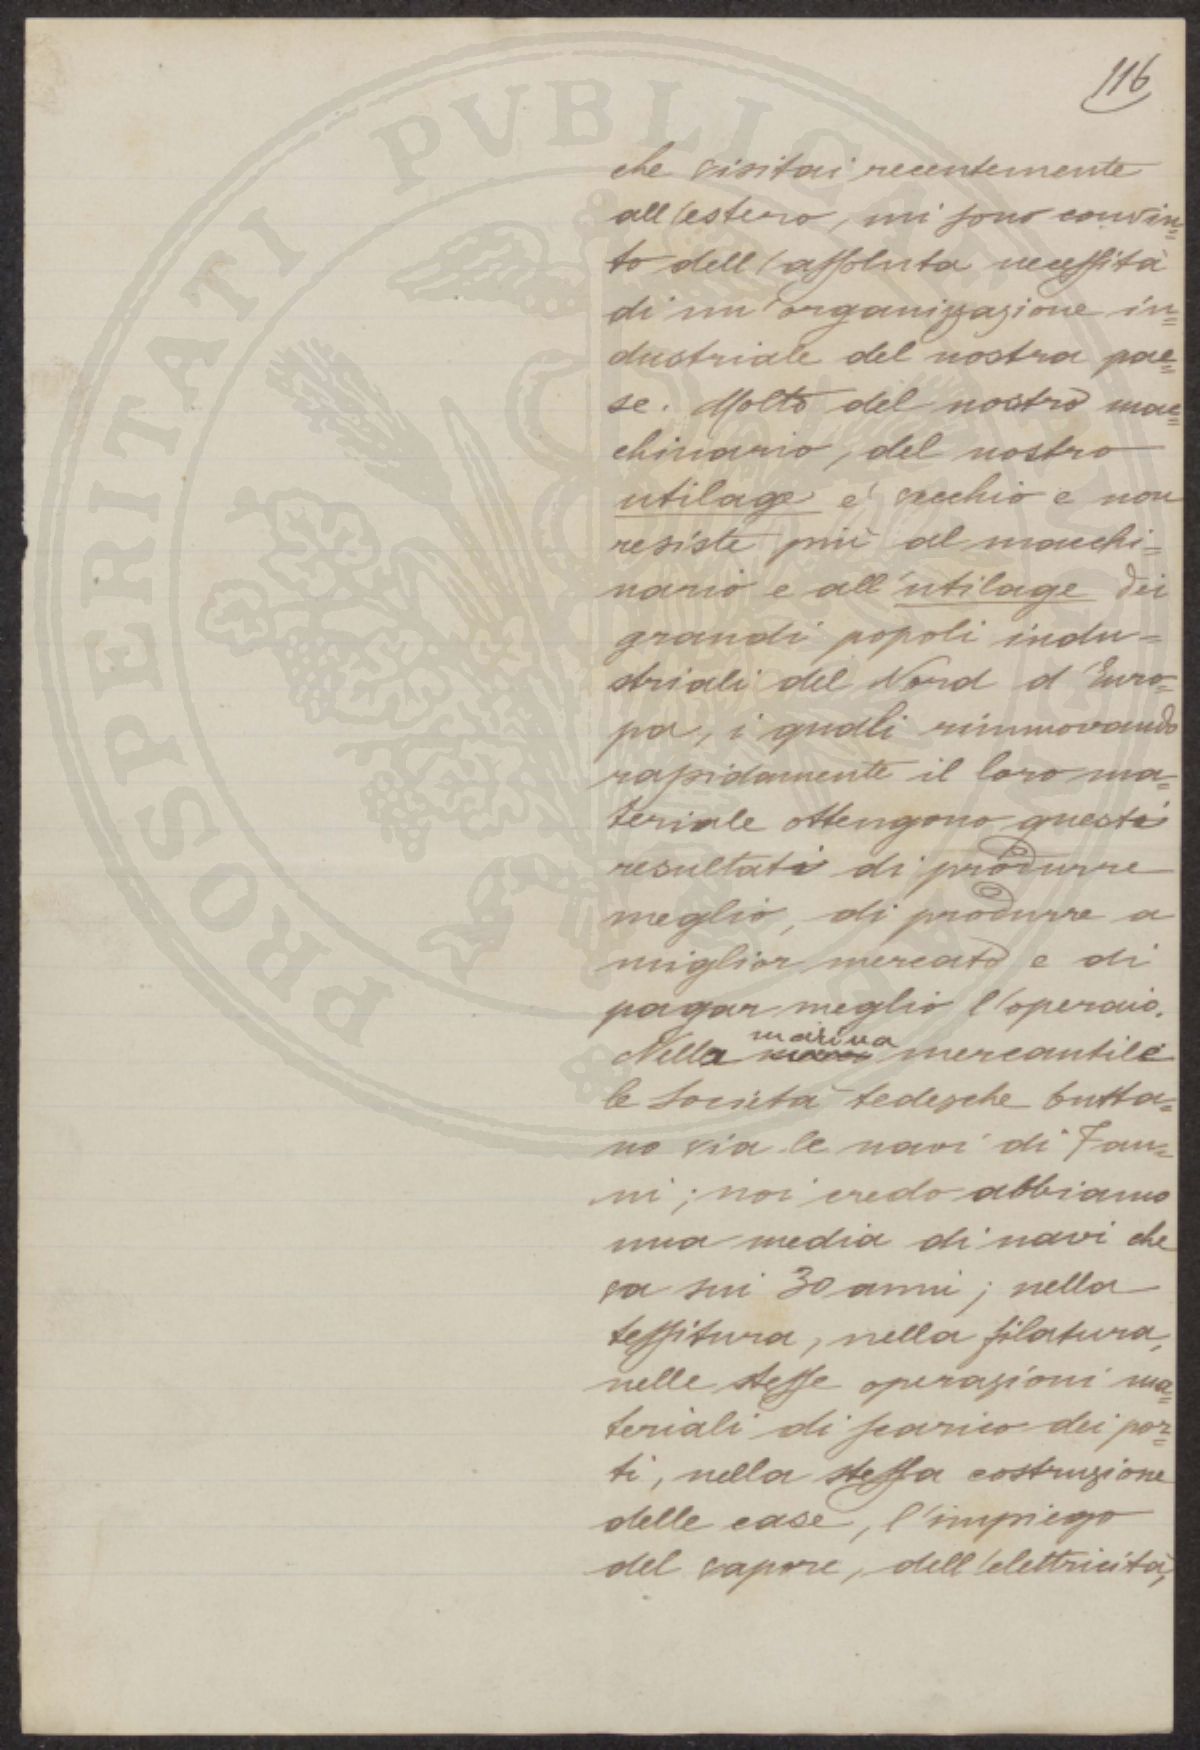 116
che visitai recentemente
all'estero, mi sono convin=
to dell'assoluta necessità
di un'organizzazione in=
dustriale del nostra pae=
se. Molto del nostro mac=
chinario, del nostro
utilage è vecchio e non
resiste più al macchi=
nario e all'utilage dei
grandi popoli indu=
striali del Nord d'Euro=
pa, i quali rinnovando
rapidamente il loro ma=
teriale ottengono questi
resultati di produrre
meglio, di produrre a
miglior mercato e di
pagar meglio l'operaio.
Nella marina mercantile
le Società tedesche butta=
no via le navi di 7 an=
ni; noi credo abbiamo
una media di navi che
va sui 30 anni; nella
tessitura, nella filatura,
nelle stesse operazioni ma=
teriali di scarico dei por=
ti, nella stessa costruzione
delle case, l'impiego
del vapore, dell'elettricità,
PROSPERITATI PVBLICAE